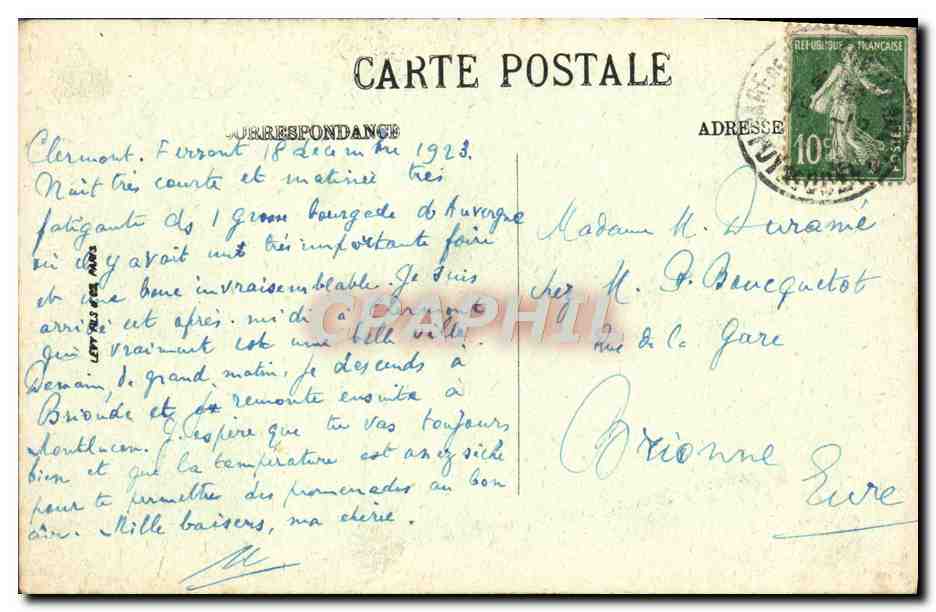 CARTE POSTALE
CORRESPONDANCE
ADRESSE
REPUBLIQUE FRANÇAISE
10c
POSTES
Clermont. Ferrant 18 decembre 1923.
Nuit très courte et matinée très
fatigante ds 1 grosse bourgade d'Auvergne
où il y avait une très importante foire
et une boue invraisemblable. Je suis
arrivé cet après-midi à Clermont
qui vraiment est une belle ville.
Demain, de grand matin, je descends à
Brioude et je remonte ensuite à
Montluçon. J'espère que tu vas toujours
bien et que la température est assez sèche
pour te permettre des promenades au bon
air. Mille baisers, ma chérie.
M
Madame M. Duramé
chez M. P. Boucquetot
Rue de la Gare
Brionne
Eure
LEVY FILS & Cie, PARIS
CPAPHIL